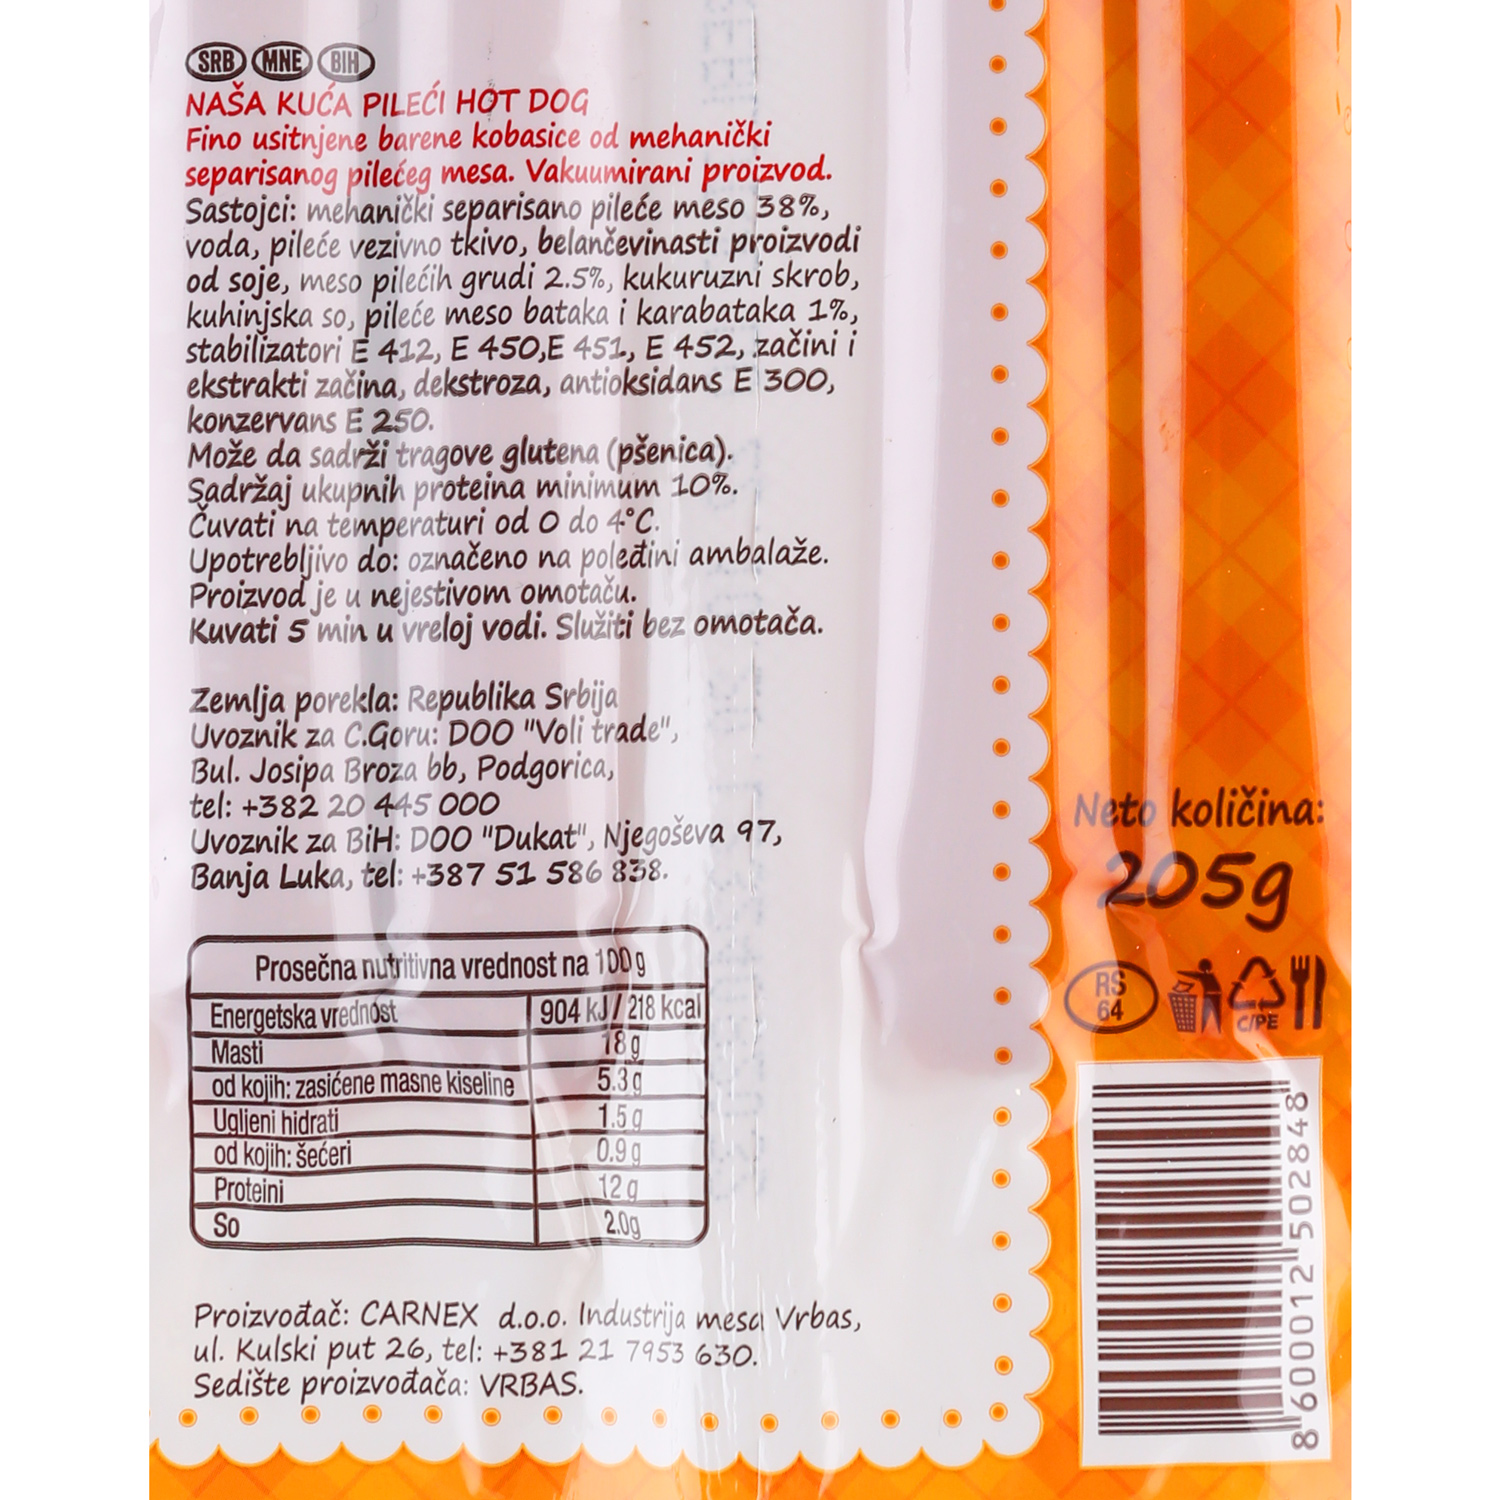 SRB MNE BIH
NAŠA KUĆA PILEĆI HOT DOG
Fino usitnjene barene kobasice od mehanički
separisanog pilećeg mesa. Vakuumirani proizvod.
Sastojci: mehanički separisano pileće meso 38%,
voda, pileće vezivno tkivo, belančevinasti proizvodi
od soje, meso pilećih grudi 2.5%, kukuruzni skrob,
kuhinjska so, pileće meso bataka i karabataka 1%,
stabilizatori E 412, E 450,E 451, E 452, začini i
ekstrakti začina, dekstroza, antioksidans E 300,
konzervans E 250.
Može da sadrži tragove glutena (pšenica).
Sadržaj ukupnih proteina minimum 10%.
Čuvati na temperaturi od 0 do 4°C.
Upotrebljivo do: označeno na poleđini ambalaže.
Proizvod je u nejestivom omotaču.
Kuvati 5 min u vreloj vodi. Služiti bez omotača.
Zemlja porekla: Republika Srbija
Uvoznik za C.Goru: DOO "Voli trade",
Bul. Josipa Broza bb, Podgorica,
tel: +382 20 445 000
Uvoznik za BiH: DOO "Dukat", Njegoševa 97,
Banja Luka, tel: +387 51 586 838.
Prosečna nutritivna vrednost na 100 g
Energetska vrednost 904 kJ / 218 kcal
Masti 18 g
od kojih: zasićene masne kiseline 5.3 g
Ugljeni hidrati 1.5 g
od kojih: šećeri 0.9 g
Proteini 12 g
So 2.0g
Proizvođač: CARNEX d.o.o. Industrija mesa Vrbas,
ul. Kulski put 26, tel: +381 21 7953 630.
Sedište proizvođača: VRBAS.
Neto količina:
205g
RS
64
C/PE
8 600012 502848